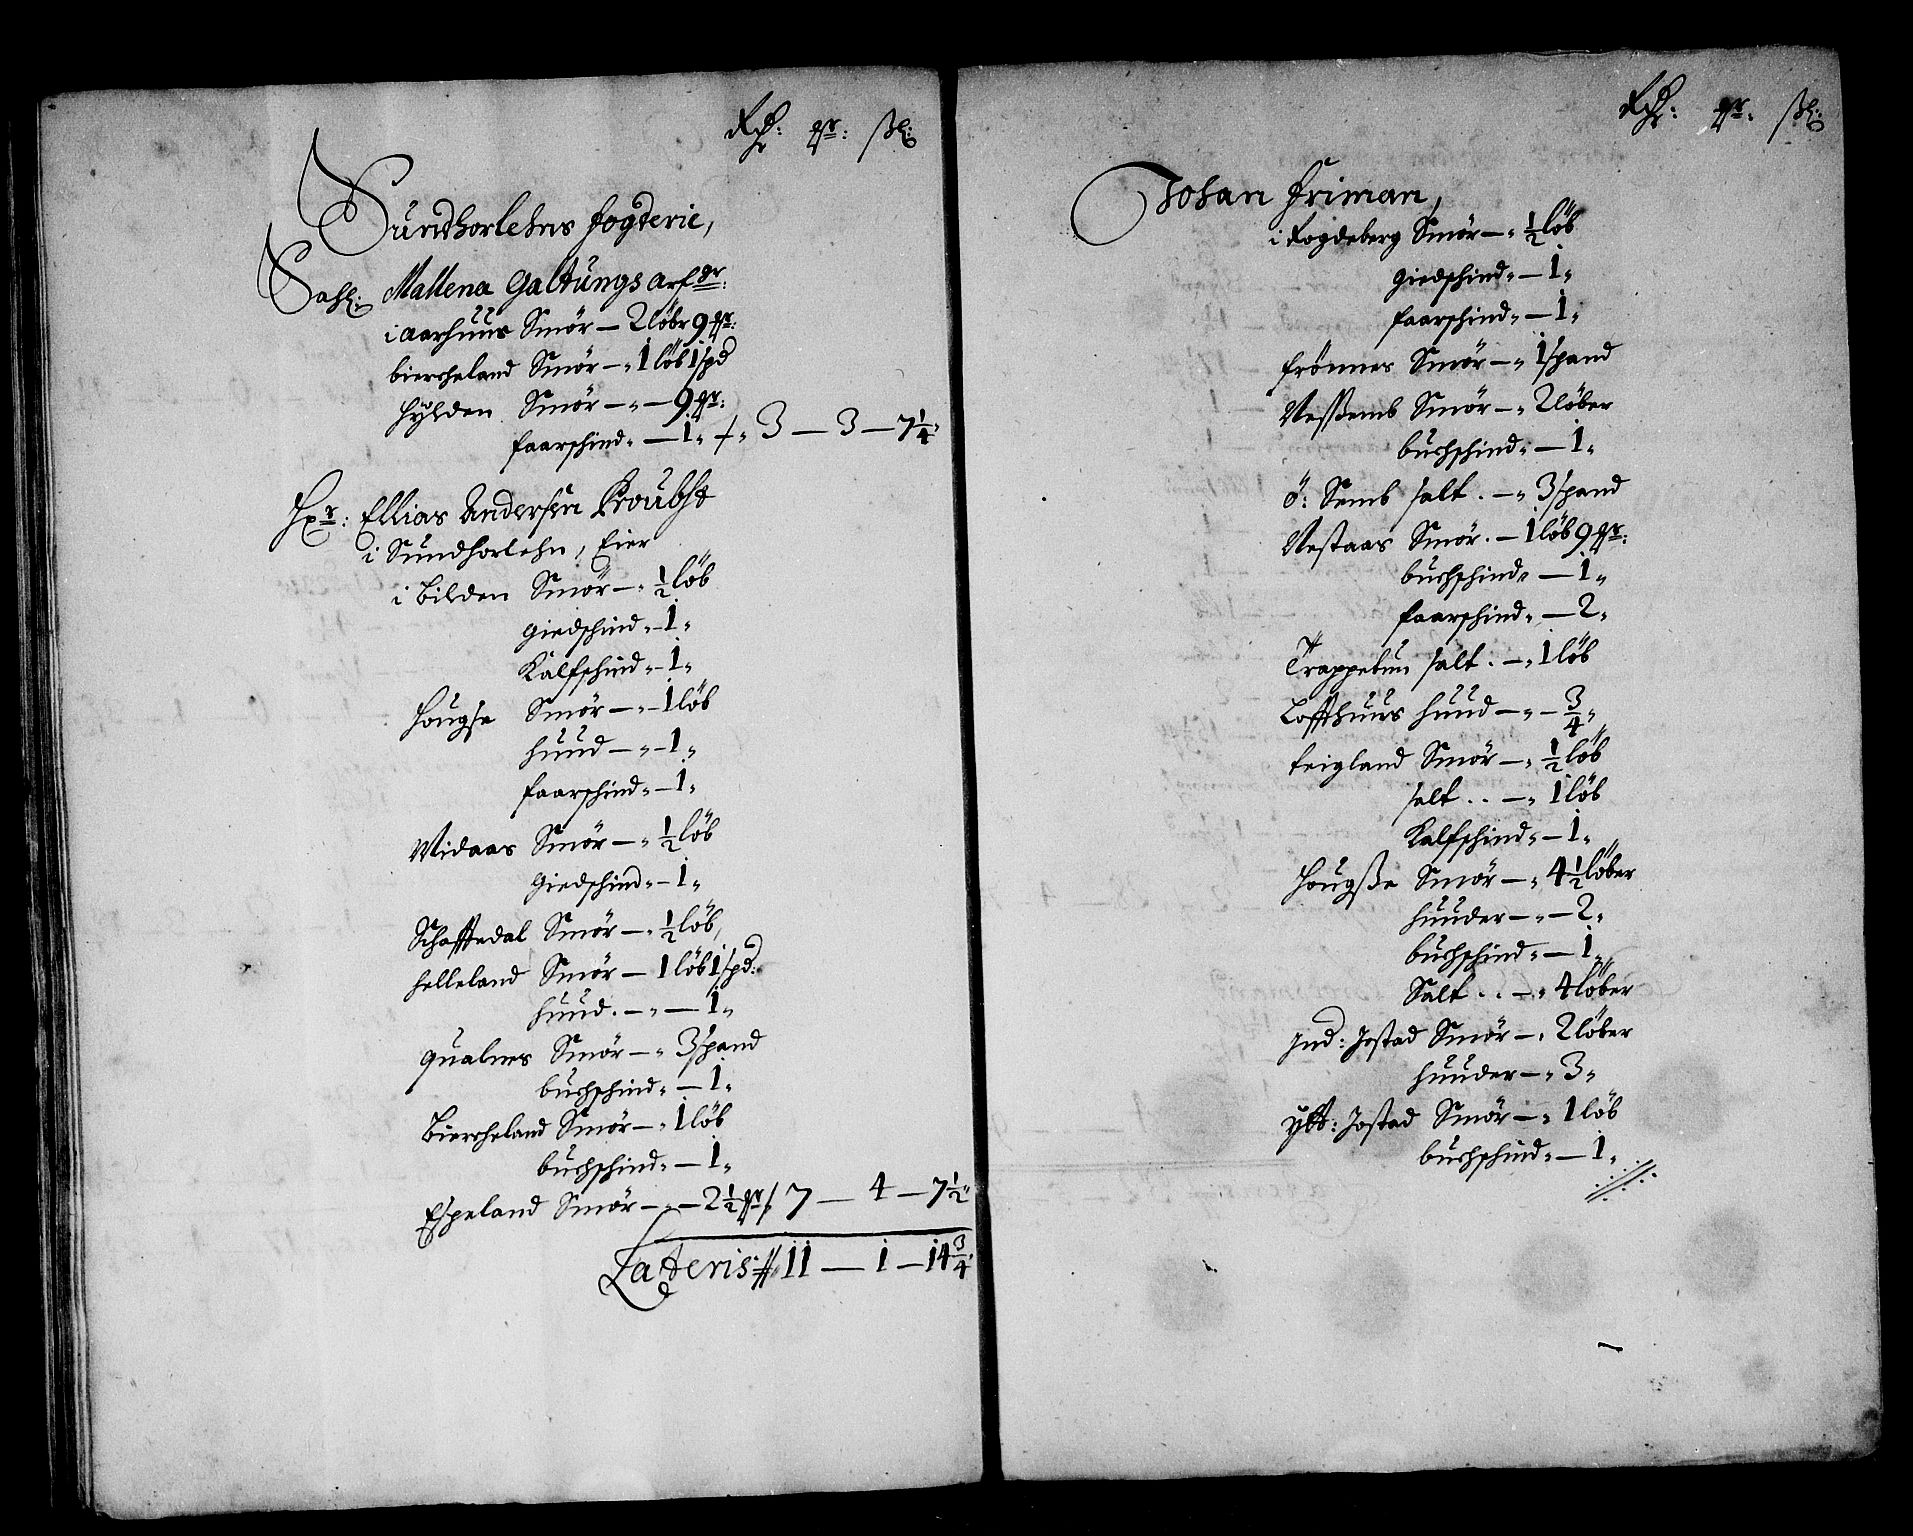 Rdr: qr: ßl:
Sundhorlehns fogterie,
Sahl: Mallena Galtungs arf:gr:
i Aarhuus Smör — 2 löber 9 mr:
bierscheland Smör — 1 löb 1 spd
hylden Smör — 9 mr:
faarschind — 1 — 3 — 3 — 7 1/4
Hr: Ellias Andersen Proubst
i Sundhorlehn, Eier
i Bilden Smör — 1/2 löb
giedschind — 1
Kalfschind — 1
Hougse Smör — 1 löb
huud — 1
faarschind — 1
Widaas Smör — 1/2 löb
giedschind — 1
Schafftedal Smör — 1/2 löb,
helleland Smör — 1 löb 1 spd:
huud — 1
qualnes Smör — 3 spand
buchschind — 1
Bierscheland Smör — 1 löb
buchschind — 1
Espeland Smör — 2 1/2 mr / 7 — 4 — 7 1/2
Lateris // 11 — 1 — 14 3/4
Rdr: qr: ßl:
Johan friman,
i Rogdeberg Smör — 1/2 löb
giedschind — 1
faarschind — 1
frönnes Smör — 1 spand
Neßemb Smör — 2 löber
buchschind — 1
ö: Semb salt — 3 spand
Nestaas Smör — 1 löb 9 mr:
buchschind — 1
faarschind — 2
Trappetun salt — 1 löb
Loffthuus huud — 3/4
feigland Smör — 1/2 löb
salt — 1 löb
Kalfschind — 1
Hougße Smör — 4 1/2 löber
huuder — 2
buchschind — 1
Salt — 4 löber
Ind: Jostad Smör — 2 löber
huuder — 3
ytt: Jostad Smör — 1 löb
buchschind — 1